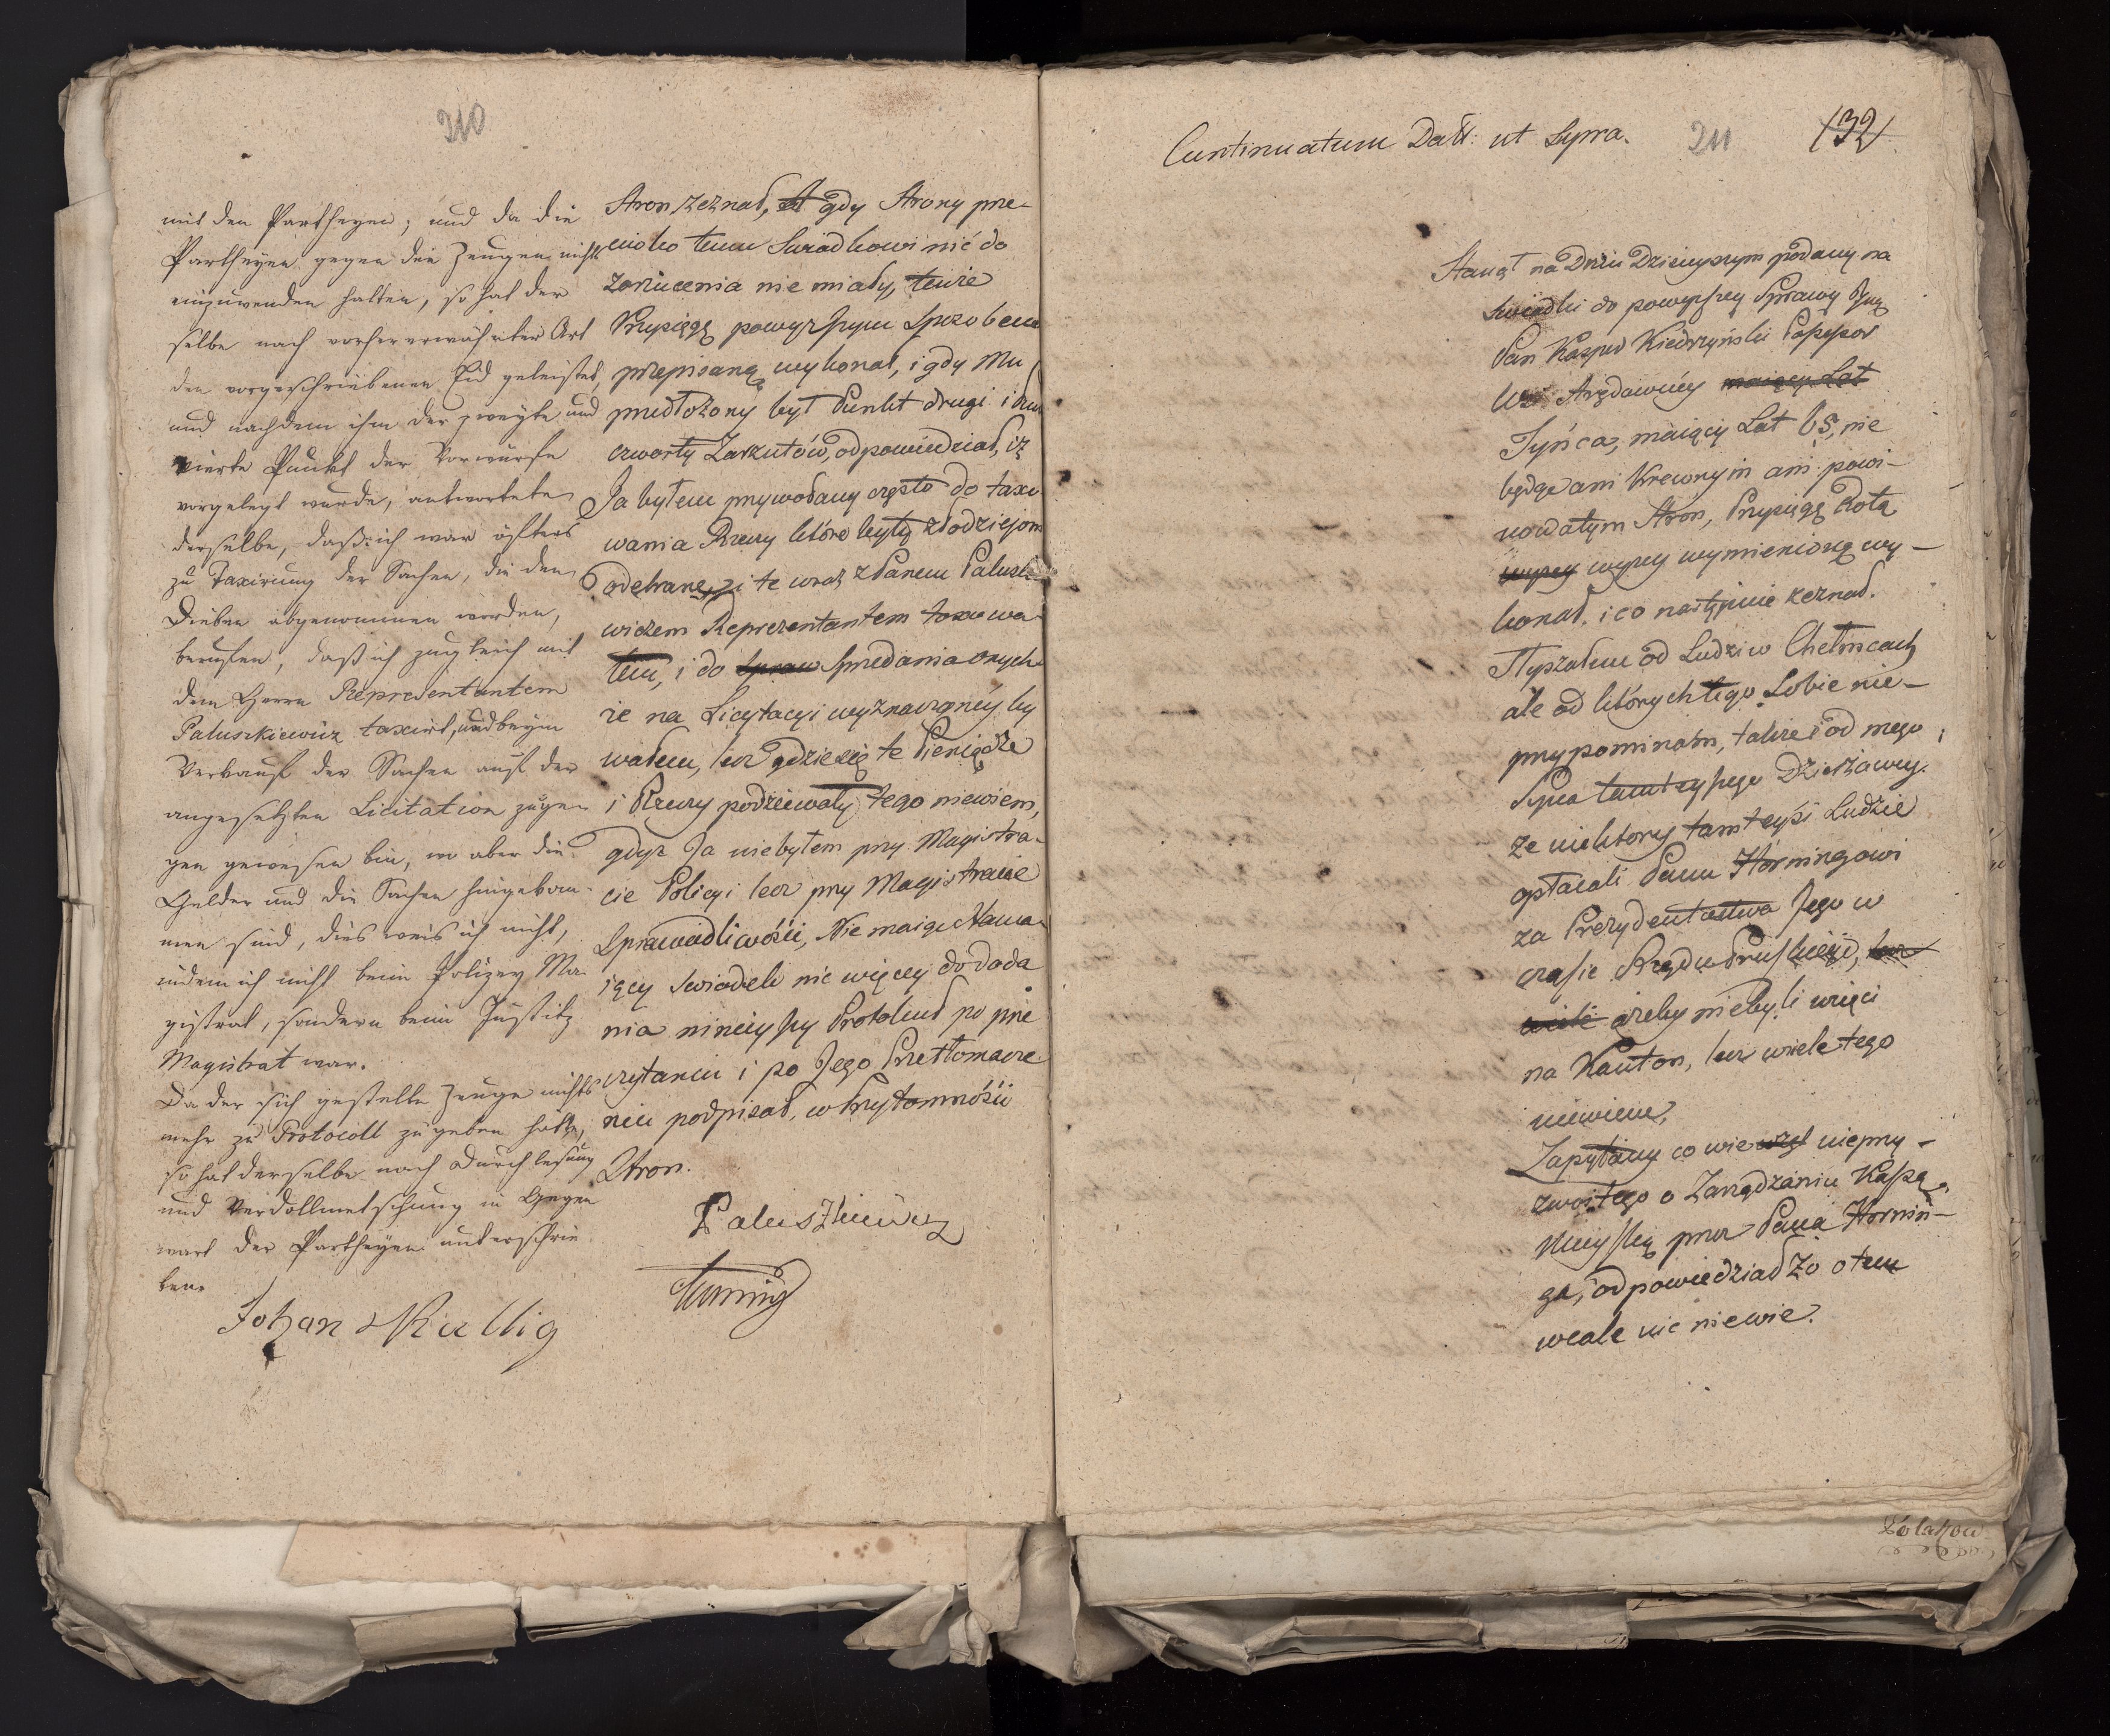 210
mit den Partheyen; und da die
Partheyen gegen die Zeugen nichts
einzuwenden hatten, so hat der
selbe nach vorher erwähnter Art
den vorgeschriebenen Eid geleistet,
und nachdem ihm der zweyte und
vierte Punkt der Vorwürfe
vorgelegt wurde, antwortete
derselbe, daß ich war öfters
zu Taxirung der Sachen, die den
Dieben abgenommen worden,
berufen, daß ich zugleich mit
dem Herrn Repraesentantem
Paluszkiewicz taxirt, und beym
Verkauf der Sachen auf der
angesetzten Licitation zuge-
gen gewesen bin, wo aber die
Gelder und die Sachen hingekom-
men sind, dies weis ich nicht,
indem ich nicht beim Polizey Ma-
gistrat, sondern beim Justitz
Magistrat war.
Da der sich gestellte Zeuge nichts
mehr zu Protocoll zu geben hatte,
so hat derselbe nach Durchlesung
und Verdollmetschung in Gegen
wart der Partheyen unterschrie
ben.
Johan
Stron zeznał, gdy Strony prze-
ciwko temu Swiadkowi nić do
zarzucenia nie miały, tenże
Przysięgę powyższym Sposobem
przepisaną wykonał, i gdy Mu
przedłożony był Punkt drugi i
czwarty Zarzutów, odpowiedział, iż
Ja byłem przywołany często do taxo
wania Rzeczy które były złodziejom
odebrane, i te wraz z Panem Palusz
wiczem Reprezentantem taxowa
łem, i do Spraw Sprzedania onych
że na Licytacyi wyznaczoney by
wałem, lecz gdzie się te Pieniądze
i Rzeczy podziewały, tego niewiem,
gdyż Ja niebyłem przy Magistra-
cie Policyi lecz przy Magistracie
Sprawiedliwości, Nie maiąc Stawa-
iący Swiadek nic więcey do doda
nia ninieyszy Protokuł po prze
czytaniu i po Jego Przetłomacze
niu podpisał, w Przytomności
Stron.
Paluszkiewicz
Horning
Continuatum Datt: ut Supra.
211
132
Stanął na Dniu Dzisieyszym podany na
Swiadki do powyższey Sprawy
Pan Kasper Kiedrzyński Possessor
Wsi Arędowney maiący Lat
Tyńca, maiący Lat 65, nie
będąc ani Krewnym ani powi-
nowatym Stron, Przysięgę Rotą
wyzey wyzey wymienioną wy-
konał, i co następuie zeznał.
Słyszałem od Ludzi w Chełmcach
ale od których tego Sobie nie-
przypominam, także i od mego
Syna tamteyszego Dzierżawcy.
że niektorzy tamteysi Ludzie
opłacali Panu Horningowi
za Prezydentostwa Jego w
czasie Rządu Pruskiego, lecz
wiele ażeby niebyli wzięci
na Kanton, lecz wiele tego
niewiem,
Zapytany co wie względ nieprzy-
zwoitego o Zarządzaniu Kassą
Mieyską przez Pana Hornin-
ga, odpowiedział że o tem
wcale nic niewie.